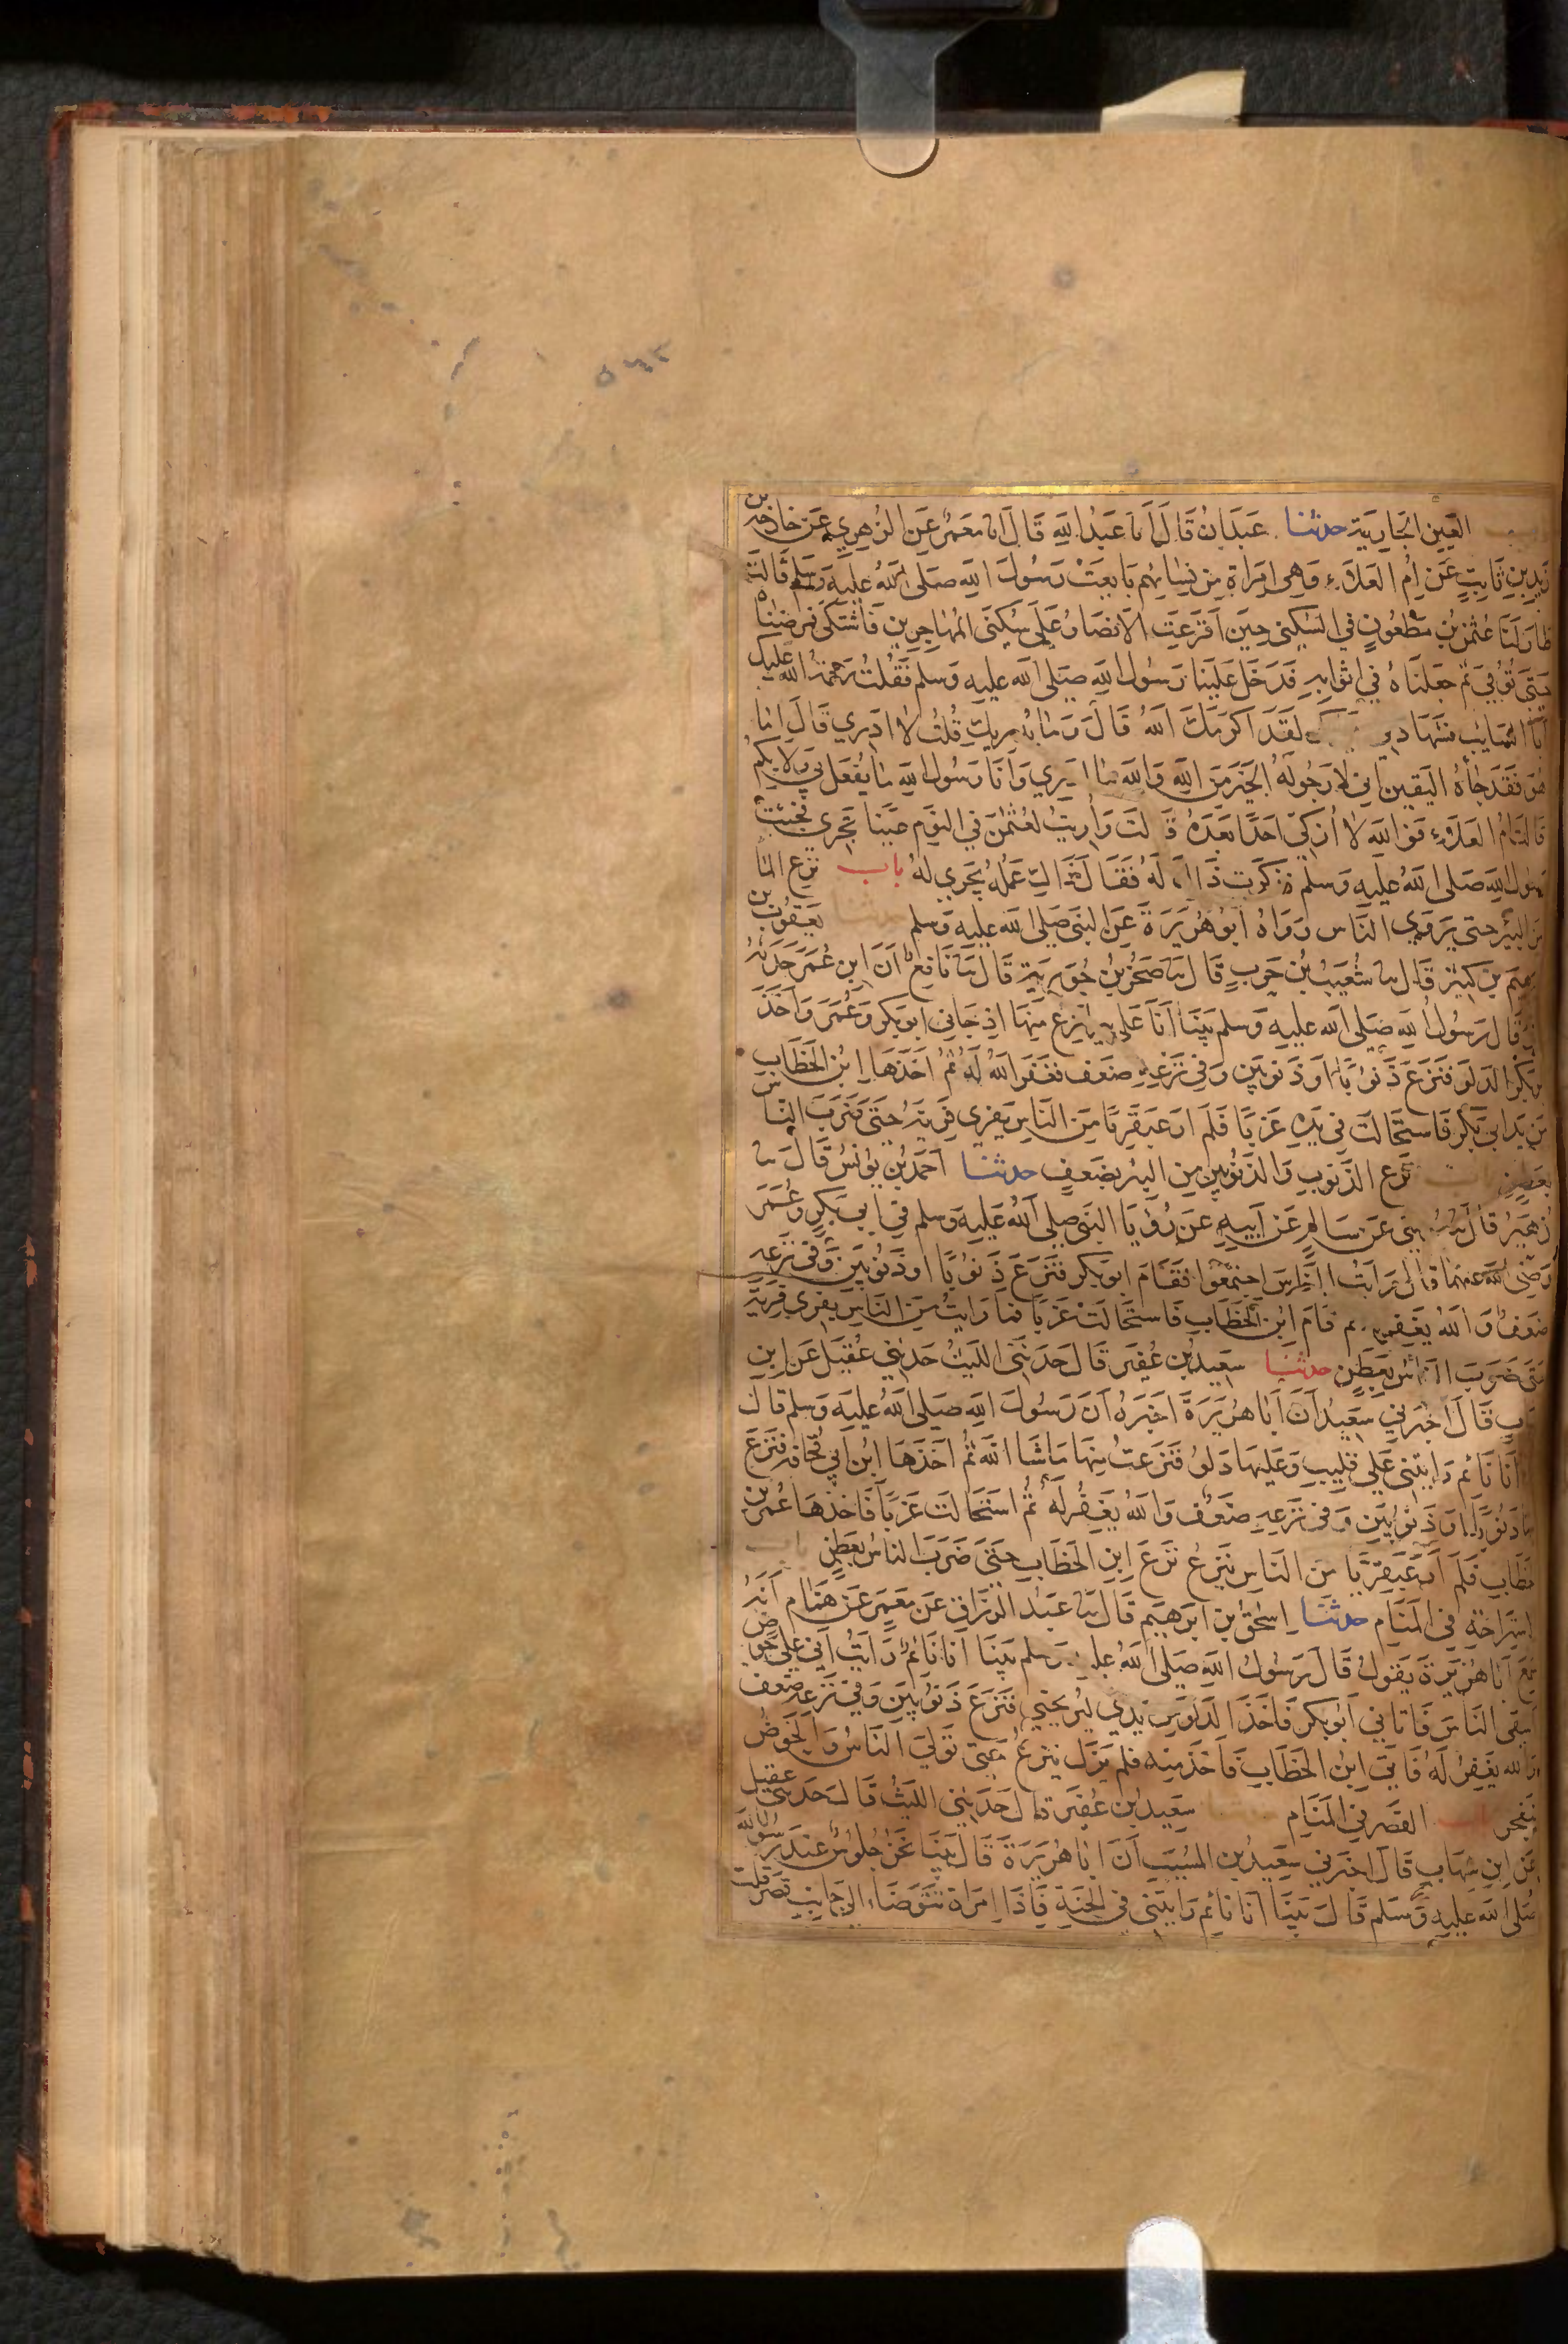 ٥٤٢
باب العين الجارية حدثنا عبدان قال انا عبد الله قال انا معمر عن الزهري عن خارجة بن
زيد بن ثابت عن ام العلاء وهي امراة من نسائهم بايعت رسول الله صلى الله عليه وسلم قالت
طار لنا عثمن بن مظعون في السكنى حين اقترعت الانصار على سكنى المهاجرين فاشتكى فمرضناه
حتى توفي ثم جعلناه في اثوابه فدخل علينا رسول الله صلى الله عليه وسلم فقلت رحمة الله عليك
ابا السايب فشهادتي لقد اكرمك الله قال وما يدريك قلت لا ادري قال اما
هو فقد جاءه اليقين اني لارجو له الخير من الله والله ما ادري وانا رسول الله ما يفعل بي ولا بكم
قالت ام العلاء فوالله لا ازكي احدا بعده قالت واريت لعثمن في النوم عينا تجري فجئت
رسول الله صلى الله عليه وسلم فذكرت ذلك له فقال ذاك عمله يجري له باب نزع الماء
من البئر حتى يروى الناس رواه ابو هريرة عن النبي صلى الله عليه وسلم حدثنا يعقوب بن
ابرهيم بن كثير قال نا شعيب بن حرب قال نا صخر بن جويرية قال نا نافع ان ابن عمر حدثه
قال رسول الله صلى الله عليه وسلم بينا انا على بير انزع منها اذ جاني ابو بكر وعمر واخذ
ابو بكر الدلو فنزع ذنوبا او ذنوبين وفي نزعه ضعف فغفر الله له ثم اخذها ابن الخطاب
من يد ابي بكر فاستحالت في يده غربا فلم ار عبقريا من الناس يفري فريه حتى ضرب الناس
بعطن باب نزع الذنوب والذنوبين من البير بضعف حدثنا احمد بن يونس قال نا
زهير قال نا موسى عن سالم عن ابيه عن رؤيا النبي صلى الله عليه وسلم في ابي بكر وعمر
رضي الله عنهما قال رايت الناس اجتمعوا فقام ابو بكر فنزع ذنوبا او ذنوبين وفي نزعه
ضعف والله يغفر له ثم قام ابن الخطاب فاستحالت غربا فما رايت من الناس يفري فريه
حتى ضرب الناس بعطن حدثنا سعيد بن عفير قال حدثني الليث حدثني عقيل عن ابن
شهاب قال اخبرني سعيد ان ابا هريرة اخبره ان رسول الله صلى الله عليه وسلم قال
بينا انا نائم رايتني على قليب وعليها دلو فنزعت منها ما شا الله ثم اخذها ابن ابي قحافة فنزع
منها ذنوبا او ذنوبين وفي نزعه ضعف والله يغفر له ثم استحالت غربا فاخذها عمر بن
الخطاب فلم ار عبقريا من الناس ينزع نزع ابن الخطاب حتى ضرب الناس بعطن باب
استراحة في المنام حدثنا اسحق بن ابرهيم قال نا عبد الرزاق عن معمر عن همام انه
سمع ابا هريرة يقول قال رسول الله صلى الله عليه وسلم بينا انا نائم رايت اني على حوض
اسقي الناس فاتاني ابو بكر فاخذ الدلو من يدي ليريحني فنزع ذنوبين وفي نزعه ضعف
والله يغفر له فاتى ابن الخطاب فاخذ منه فلم يزل ينزع حتى تولى الناس والحوض
يتفجر باب القصر في المنام حدثنا سعيد بن عفير قال حدثني الليث قال حدثني عقيل
عن ابن شهاب قال اخبرني سعيد بن المسيب ان ابا هريرة قال بينا نحن جلوس عند رسول الله
صلى الله عليه وسلم قال بينا انا نائم رايتني في الجنة فاذا امراة تتوضاء الى جانب قصر قلت